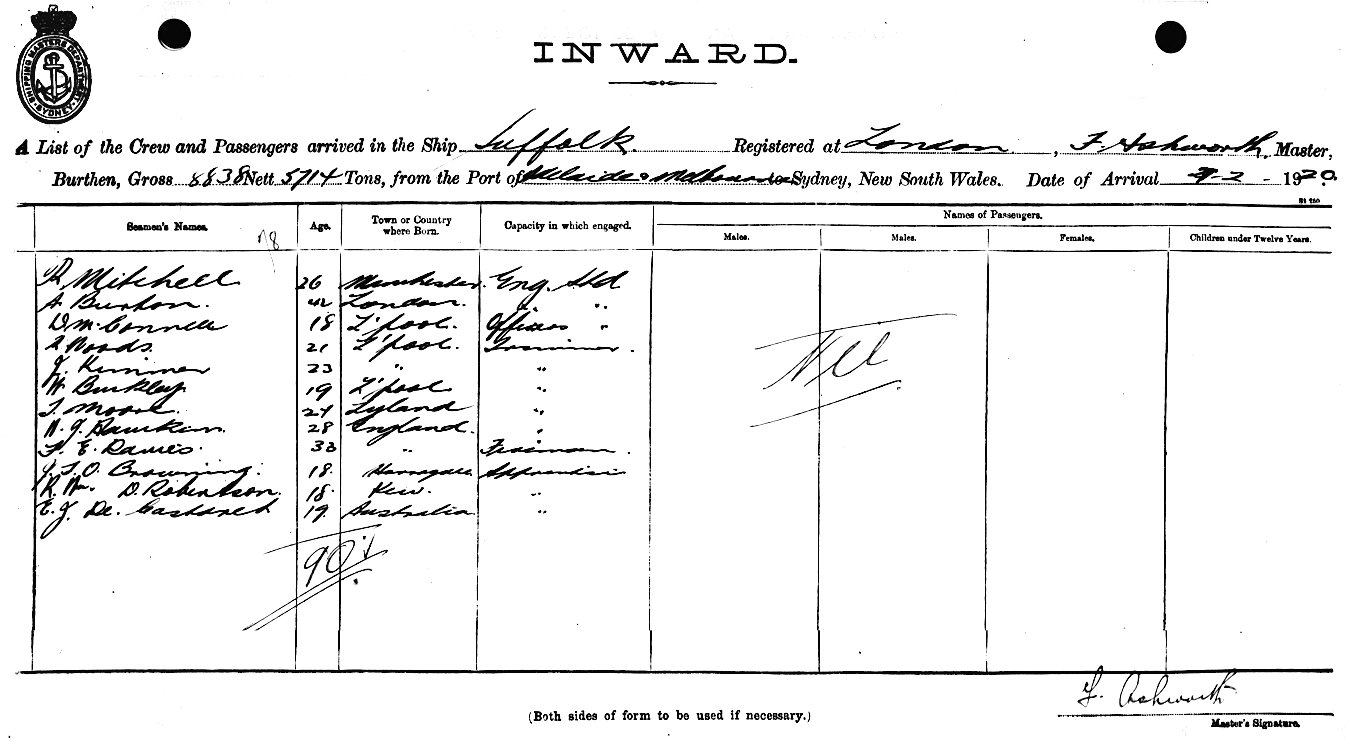 SHIPPING MASTERS DEPARTMENT SYDNEY
INWARD.
A List of the Crew and Passengers arrived in the Ship Suffolk. Registered at London, F. Ashworth, Master,
Burthen, Gross 8838 Nett 5714 Tons, from the Port of Adelaide & Melbourne to Sydney, New South Wales. Date of Arrival 9-2-1920.
Seamen's Names. 78 Age. Town or Country where Born. Capacity in which engaged. Names of Passengers.
Males. Males. Females. Children under Twelve Years.
R Mitchell 26 Manchester. Eng. Std
A. Burton. 42 London. " "
D. McConnell 18 L'pool. Officers "
Woods. 21 L'pool. Trimmer.
J. 23 " "
W. Buckley 19 L'pool "
T. Moore. 24 Leyland "
W. J. Hawkins. 28 England. "
F. E. Davies. 33 " Fireman.
J. T. O. Browning. 18. Harrogate Apprentice
R. Wm. D. Robertson. 18. Kew. "
E. J. De. 19. Australia "
Nil
90
F. Ashworth
(Both sides of form to be used if necessary.)
Master's Signature.